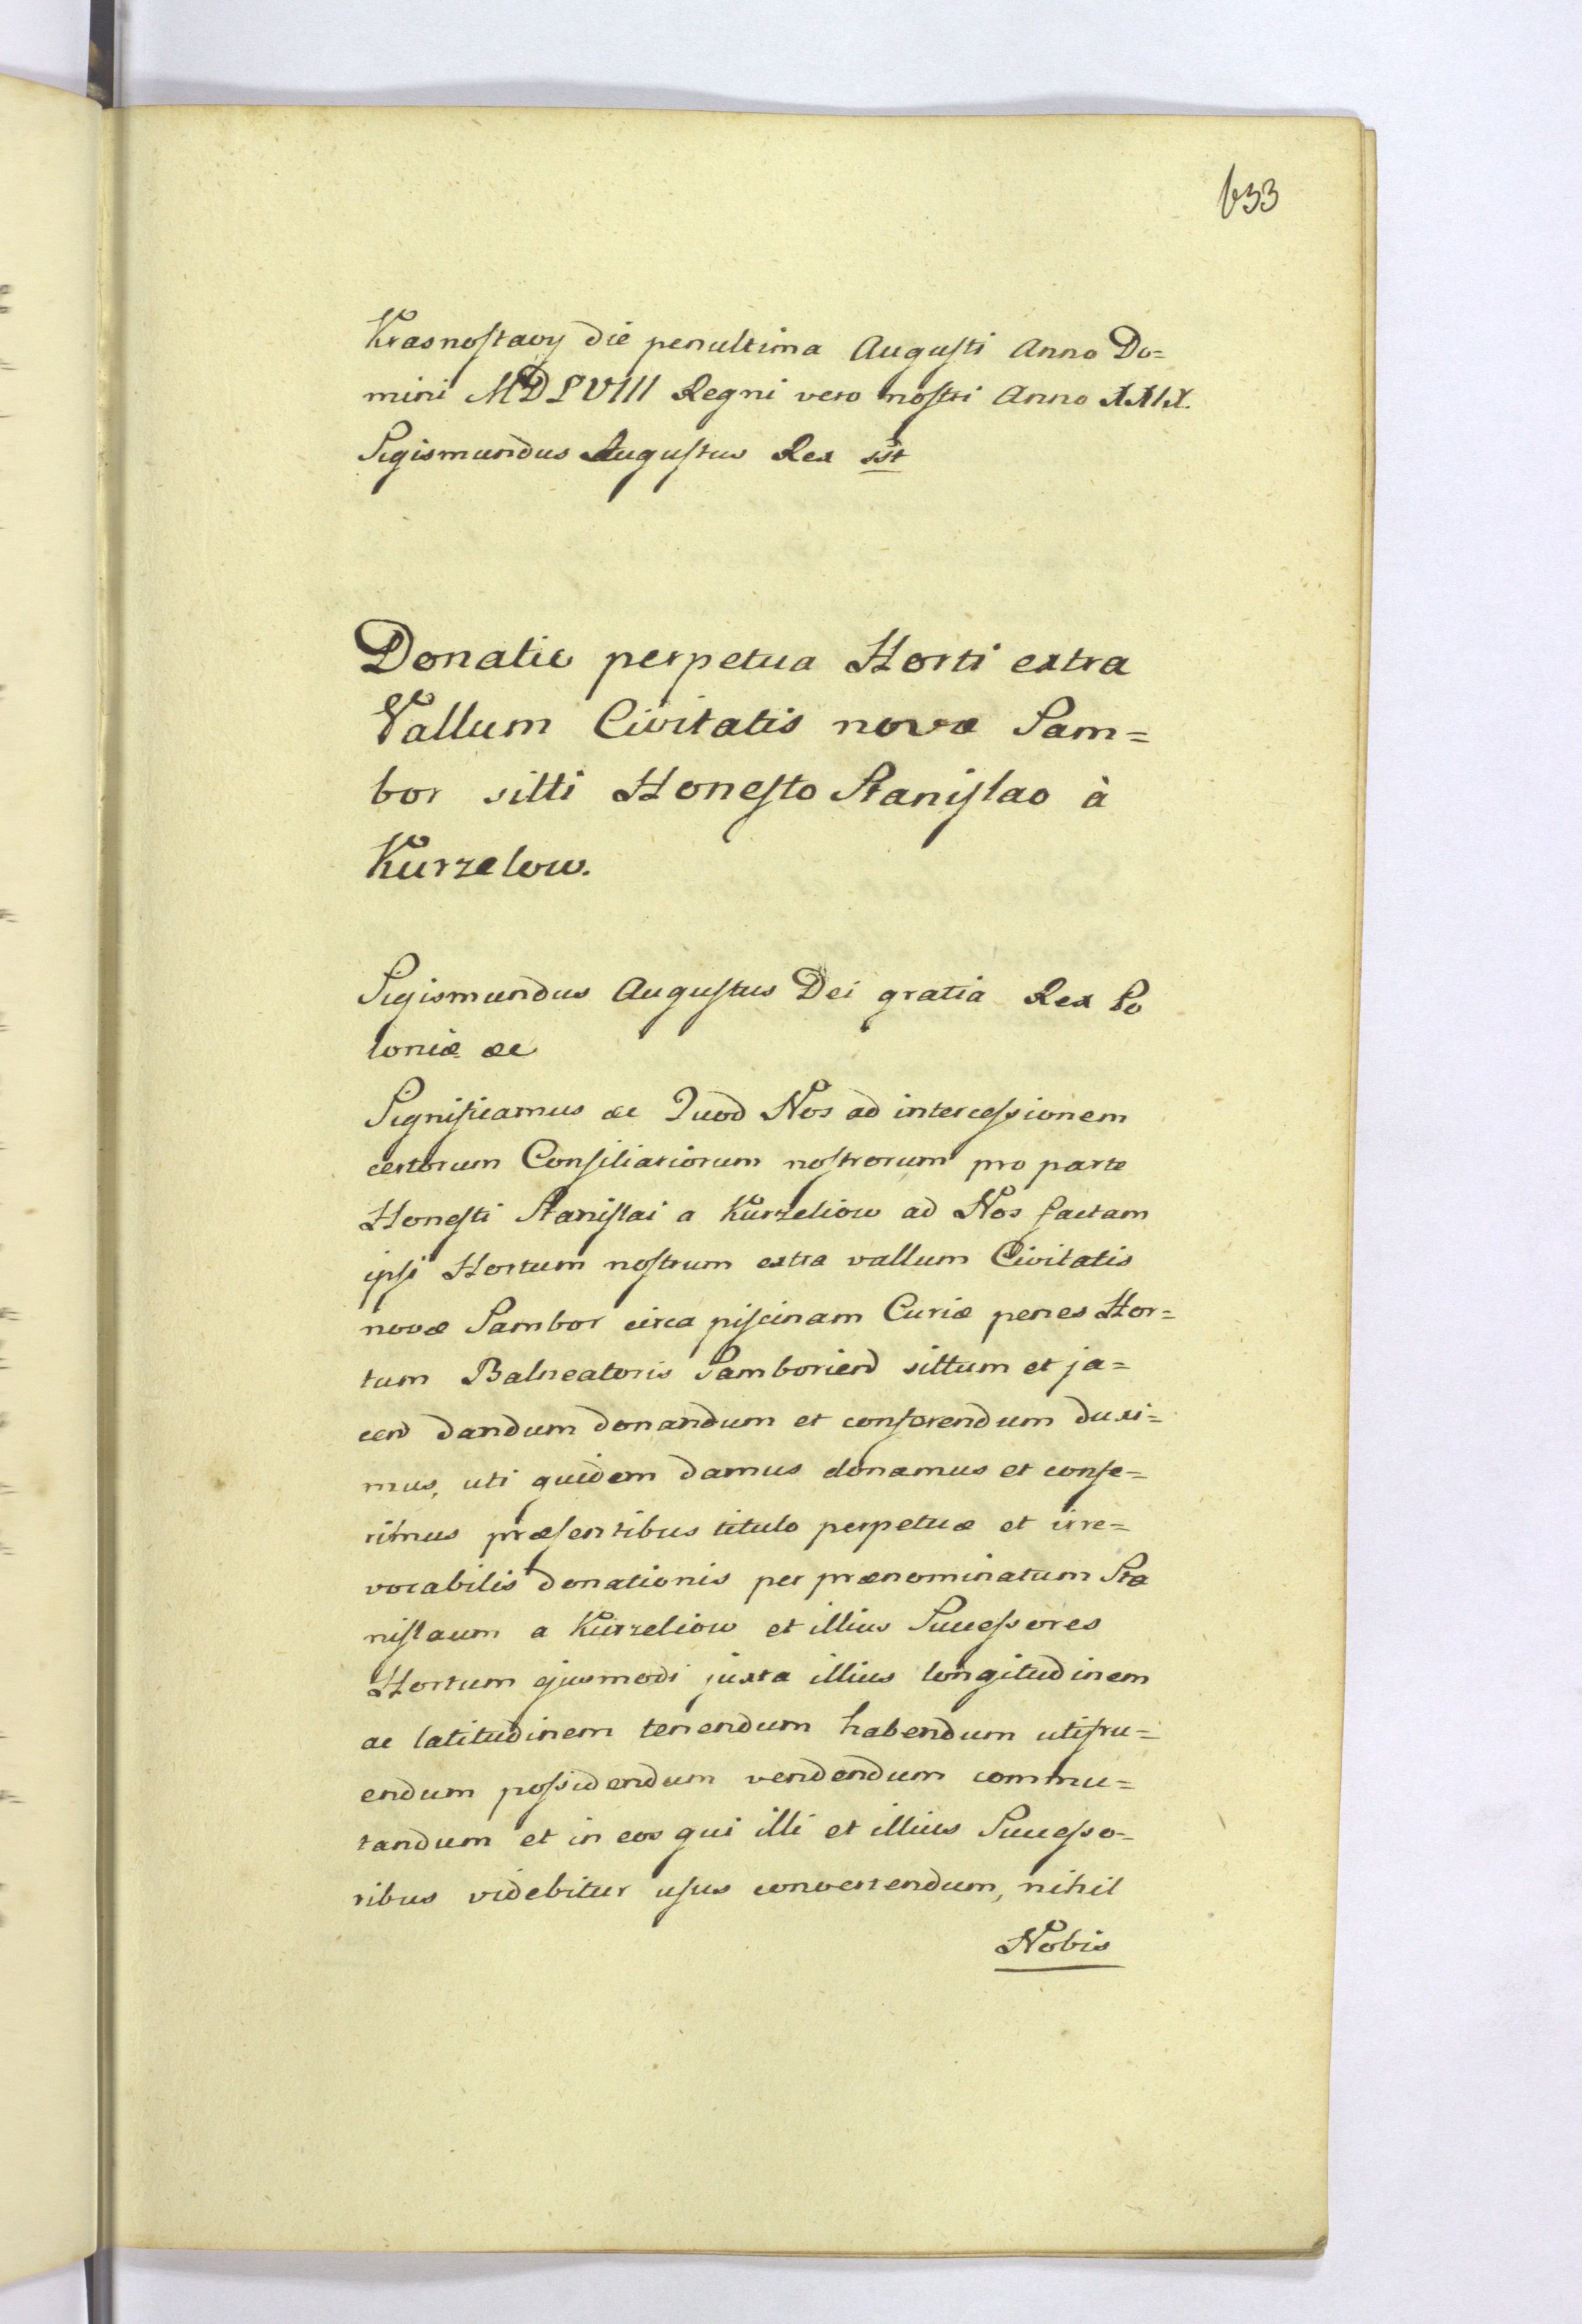 633
Krasnostavy die penultima Augusti Anno Do=
mini MDLVIII Regni vero nostri Anno XXIX.
Sigismundus Augustus Rex sst
Donatio perpetua Horti extra
Vallum Civitatis novæ Sam=
bor sitti Honesto Stanislao à
Kurzelow.
Sigismundus Augustus Dei gratia Rex Po
loniæ &c
Significamus &c Quod Nos ad intercessionem
certorum Consiliariorum nostrorum pro parte
Honesti Stanislai a Kurzeliow ad Nos factam
ipsi Hortum nostrum extra vallum Civitatis
novæ Sambor circa piscinam Curiæ penes Hor=
tum Balneatoris Samboriend sittum et ja=
cend dandum donandum et conferendum duxi=
mus, uti quidem damus donamus et confe=
rimus præsentibus titulo perpetuæ et irre=
vocabilis donationis per prænominatum Sta
nislaum a Kurzeliow et illius Successores
Hortum ejusmodi juxta illius longitudinem
ac latitudinem tenendum habendum utifru=
endum possidendum vendendum commu=
tandum et in eos qui illi et illius Successo=
ribus videbitur usus convertendum, nihil
Nobis